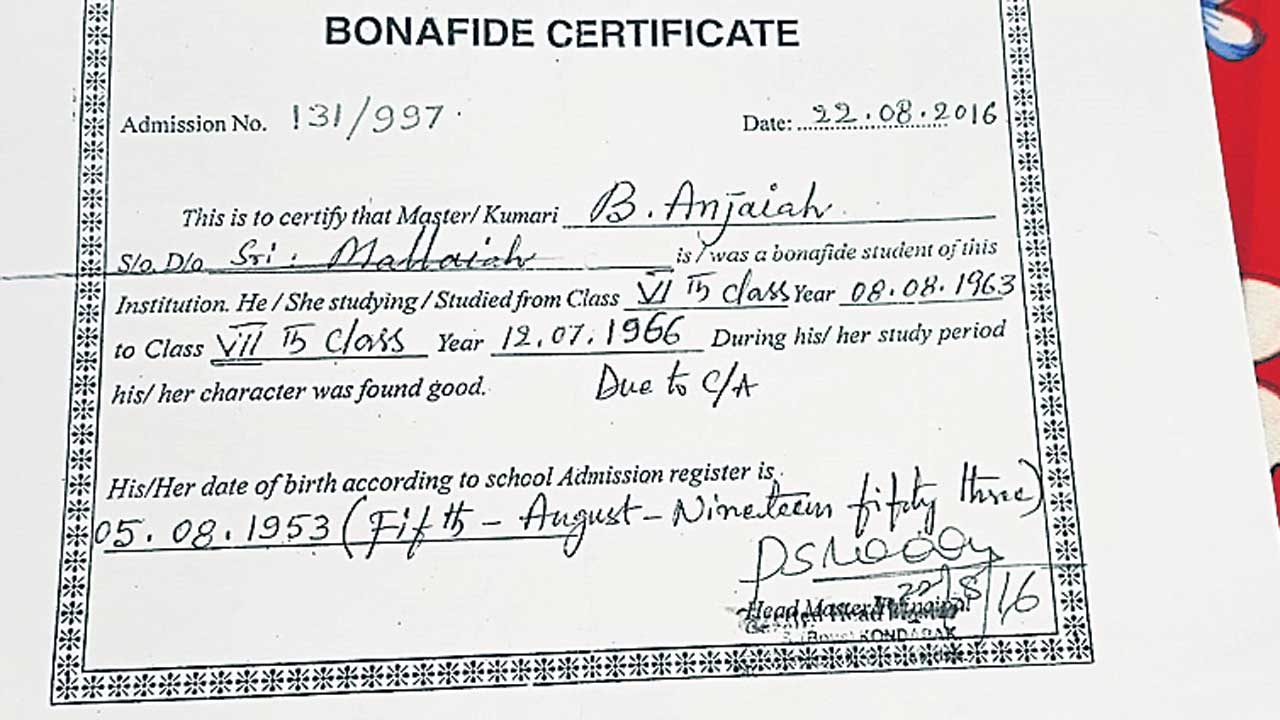 BONAFIDE CERTIFICATE
Admission No. 131/997. Date: 22.08.2016
This is to certify that Master/ Kumari B. Anjaiah
S/o. D/o Sri. Mallaiah is / was a bonafide student of this
Institution. He / She studying / Studied from Class VI Th class Year 08.08.1963
to Class VII Th Class Year 12.07.1966 During his/ her study period
his/ her character was found good. Due to C/A
His/Her date of birth according to school Admission register is
05.08.1953 (Fifth - August - Nineteen fifity three)
22/8/16
Head Master/Principal
Head
(Boys) KONDAPAK